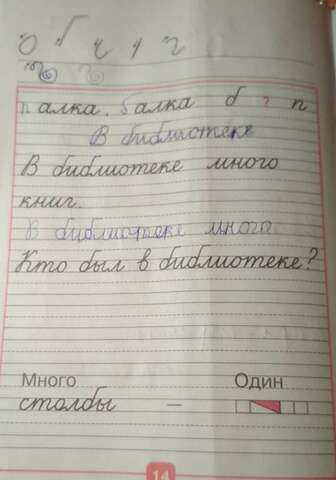 о б ч ч г
палка. балка б ? п
В библиотеке
В библиотеке много
книг.
В библиотеке много
Кто был в библиотеке?
Много Один
столбы –
14